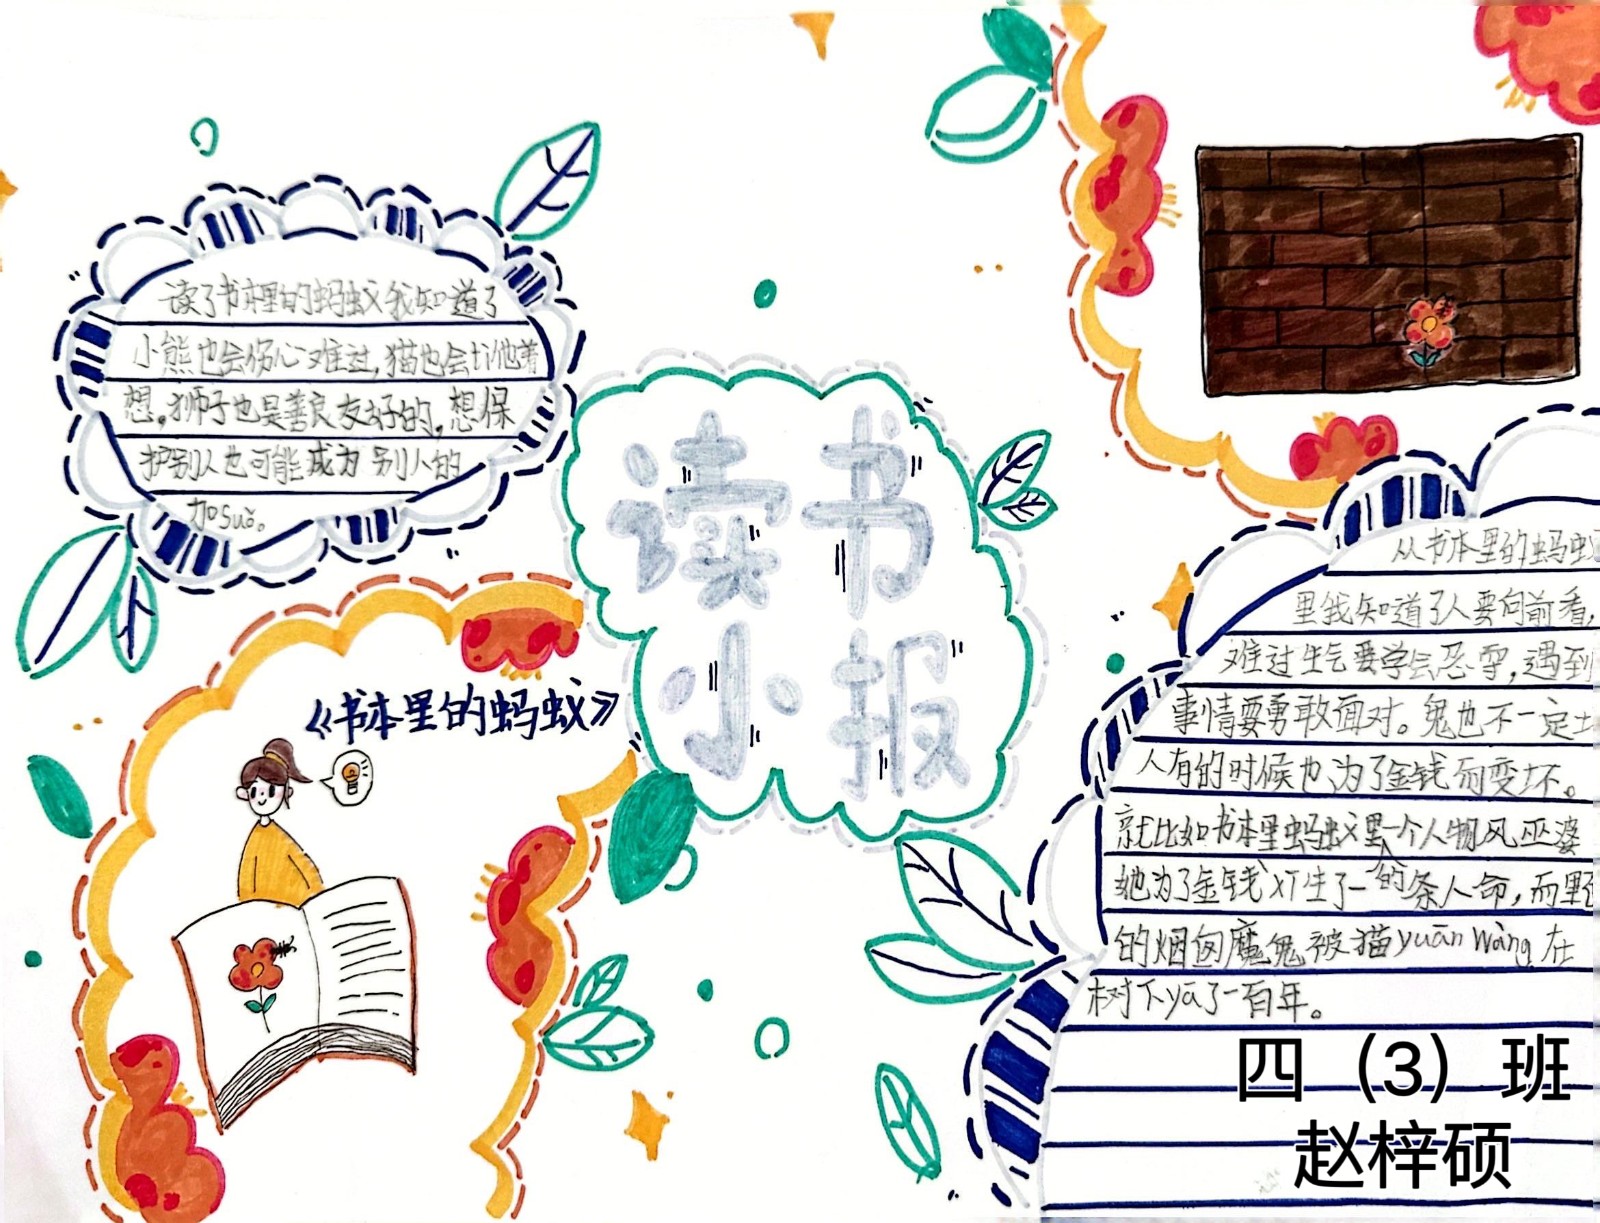 读了书本里的蚂蚁我知道了
小熊也会伤心难过,猫也会为他着
想。狮子也是善良友好的,想保
护别人也可能成为别人的
加suǒ。
读书
小报
《书本里的蚂蚁》
从书本里的蚂蚁
里我知道了人要向前看,
难过生气要学会忍耐,遇到
事情要勇敢面对。鬼也不一定
人有的时候也为了金钱而变坏。
就比如书本里蚂蚁里一个人物风巫婆
她为了金钱 生了一的条人命,而
的烟囱魔鬼被猫yuān wàng在
树下yā了一百年。
四(3)班
赵梓硕